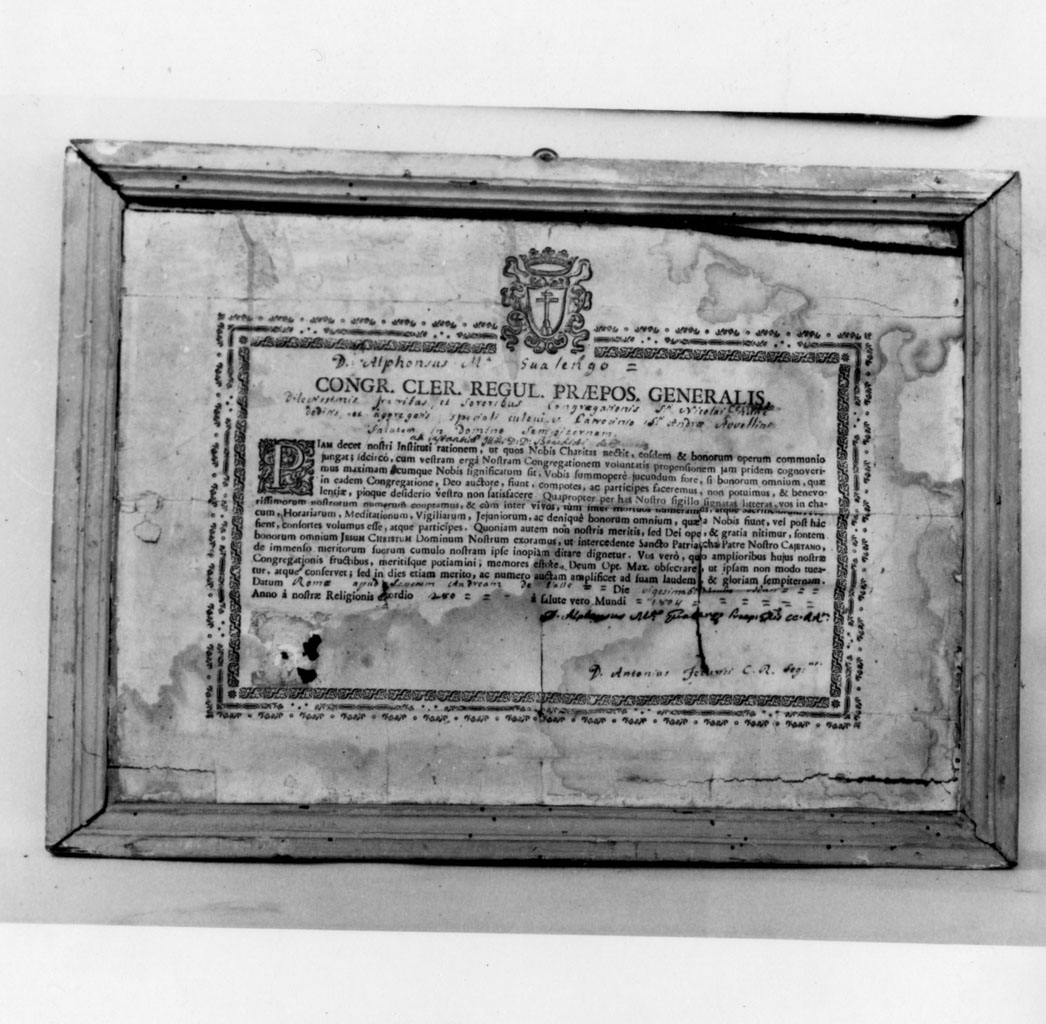 D. Alphonsus Mª Gualengo =
CONGR. CLER. REGUL. PRÆPOS. GENERALIS,
fratribus, et Sororibus Congregationis Sti. Nicolai
et aggregatis speciali cultui, et Patrocinio Sti. Andreæ Avellini
Salutem in Domino Sempiternam.
PIAM decet nostri Instituti rationem, ut quos Nobis Charitas nectit, eosdem & bonorum operum communio
jungat; idcircò, cum vestram ergà Nostram Congregationem voluntatis propensionem jam pridem cognoveri-
mus maximam, cumque Nobis significatum sit, Vobis summoperè jucundum fore, si bonorum omnium, quæ
in eadem Congregatione, Deo auctore, fiunt, compotes, ac participes faceremus, non potuimus, & benevo-
lentiæ, pioque desiderio vestro non satisfacere. Quapropter per has Nostro sigillo signatas litteras, vos in cha-
rissimorum nostrorum numerum cooptamus, & cùm inter vivos, tùm inter mortuos numeramus, atque
cum, Horariarum, Meditationum, Vigiliarum, Jejuniorum, ac deniquè bonorum omnium, quæ a Nobis fiunt, vel post hàc
fient, consortes volumus esse, atque participes. Quoniam autem non nostris meritis, sed Dei ope, & gratia nititur, fontem
bonorum omnium JESUM CHRISTUM Dominum Nostrum exoramus, ut intercedente Sancto Patriarcha Patre Nostro CAJETANO,
de immenso meritorum suorum cumulo nostram ipse inopiam ditare dignetur. Vos verò, quo amplioribus hujus nostræ
Congregationis fructibus, meritisque potiamini; memores estote, Deum Opt. Max. obsecrare, ut ipsam non modo tuea-
tur, atque conservet; sed in dies etiam merito, ac numero auctam amplificet ad suam laudem, & gloriam sempiternam.
Datum Romæ apud S. Andream de Valle = = Die
Anno à nostræ Religionis exordio 280 = = = à salute vero Mundi = 1804 = = = = =
D. Alphonsus Mª Gualengo Præpos. Glis CC. RR.
D. Antonius C. R.